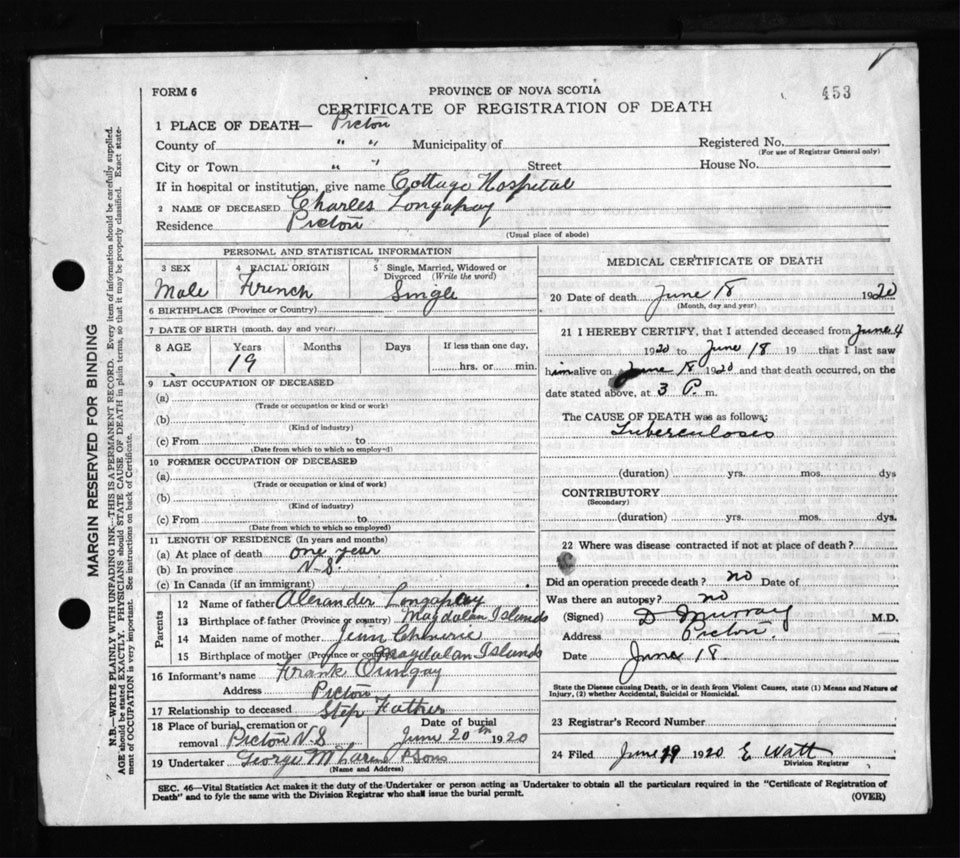 FORM 6
PROVINCE OF NOVA SCOTIA
453
CERTIFICATE OF REGISTRATION OF DEATH
1 PLACE OF DEATH— Pictou
County of " " Municipality of
Registered No.
(For use of Registrar General only)
City or Town " " Street
House No.
If in hospital or institution, give name Cottage Hospital
2 NAME OF DECEASED Charles Longaphy
Residence Pictou
(Usual place of abode)
PERSONAL AND STATISTICAL INFORMATION
3 SEX
Male
4 RACIAL ORIGIN
French
5 Single, Married, Widowed or Divorced (Write the word)
Single
6 BIRTHPLACE (Province or Country)
7 DATE OF BIRTH (month, day and year)
8 AGE Years Months Days If less than one day,
19 hrs. or min.
9 LAST OCCUPATION OF DECEASED
(a)
(Trade or occupation or kind or work)
(b)
(Kind of industry)
(c) From to
(Date from which to which so employed)
10 FORMER OCCUPATION OF DECEASED
(a)
(Trade or occupation or kind of work)
(b)
(Kind of industry)
(c) From to
(Date from which to which so employed)
11 LENGTH OF RESIDENCE (In years and months)
(a) At place of death one year
(b) In province N.S.
(c) In Canada (if an immigrant)
Parents
12 Name of father Alexander Longaphy
13 Birthplace of father (Province or country) Magdalan Islands
14 Maiden name of mother
15 Birthplace of mother (Province or country) Magdalan Islands
16 Informant's name Frank
Address Pictou
17 Relationship to deceased Step Father
18 Place of burial, cremation or removal Pictou N.S
Date of burial
June 20th 1920
19 Undertaker George McLaren & Sons
(Name and Address)
MEDICAL CERTIFICATE OF DEATH
20 Date of death June 18 1920
(Month, day and year)
21 I HEREBY CERTIFY, that I attended deceased from June 4
1920 to June 18 19 that I last saw
him alive on June 18 1920 and that death occurred, on the
date stated above, at 3 P. m.
The CAUSE OF DEATH was as follows:
Tuberculosis
(duration) yrs. mos. dys
CONTRIBUTORY
(Secondary)
(duration) yrs. mos. dys.
22 Where was disease contracted if not at place of death?
Did an operation precede death? no Date of
Was there an autopsy? no
(Signed) D Murray M.D.
Address Pictou.
Date June 18
State the Disease causing Death, or in death from Violent Causes, state (1) Means and Nature of
Injury, (2) whether Accidental, Suicidal or Homicidal.
23 Registrar's Record Number
24 Filed June 19 1920 E Watt
Division Registrar
SEC. 46—Vital Statistics Act makes it the duty of the Undertaker or person acting as Undertaker to obtain all the particulars required in the "Certificate of Registration of
Death" and to fyle the same with the Division Registrar who shall issue the burial permit.
(OVER)
MARGIN RESERVED FOR BINDING
N.B.—WRITE PLAINLY WITH UNFADING INK—THIS IS A PERMANENT RECORD. Every item of information should be carefully supplied.
AGE should be stated EXACTLY. PHYSICIANS should STATE CAUSE OF DEATH in plain terms, so that it may be properly classified. Exact state-
ment of OCCUPATION is very important. See instructions on back of Certificate.